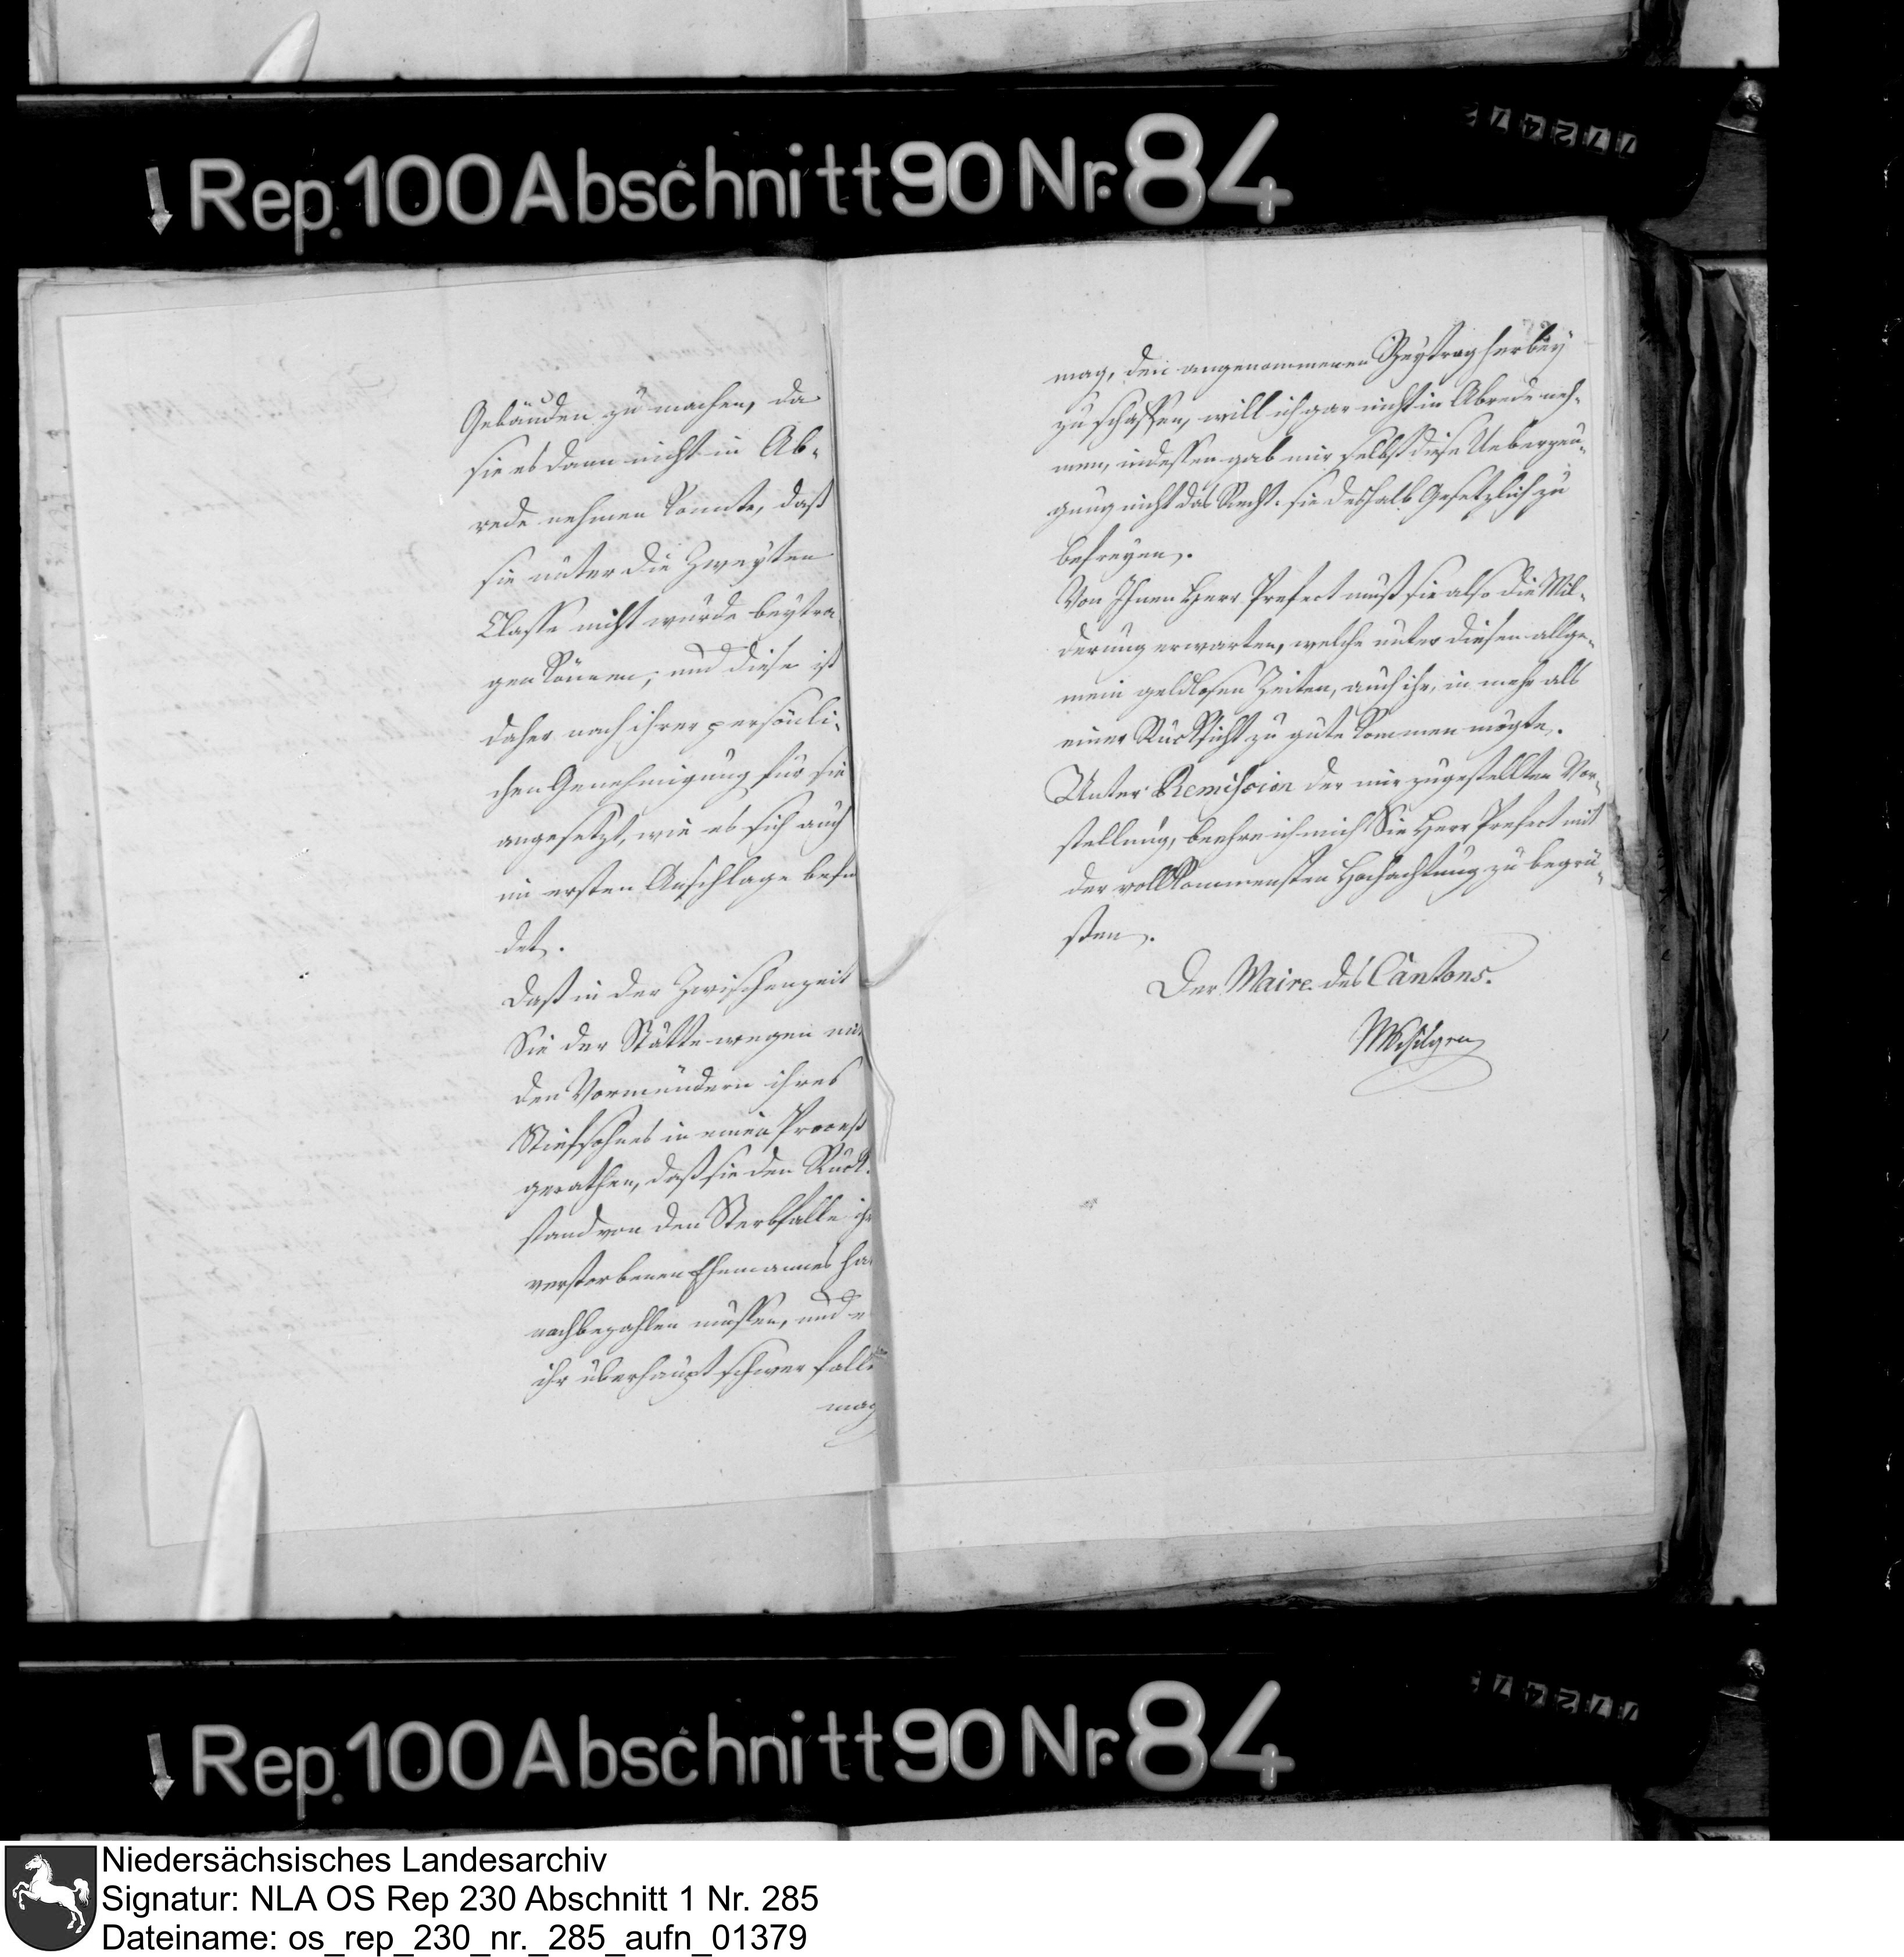 Rep. 100 Abschnitt 90 Nr. 84
Gebäuden zu machen, da
sie es dann nicht in Ab-
rede nehmen konnte, daß
sie unter die Zweyten
Classe nicht würde beytra
gen können, und diese ist
daher nach ihrer persönli-
chen Genehmigung für sie
angesetzt, wie es sich auch
im ersten Anschlage befin
det.
Daß in der Zwischenzeit
Sie der Stätte wegen mit
den Vormündern ihres
Stiefsohnes in einen Proceß
gerathen, daß sie den Rück-
stand von den Sterbfalle ihr
verstorbenen Ehemannes ha
nachbezahlen müssen, und e
ihr überhaupt schwer falle
mag
mag, den angenommenen Beytrag herbey
zu schaffen, will ich gar nicht in Abrede neh-
men, indessen gab mir selbst diese Ueberzeu-
gung nicht das Recht, sie deshalb Gesetzlich zu
befreyen.
Von Ihnen Herr Prefect muß sie also die Mil-
derung erwarten, welche unter diesen allge-
mein geldlosen Zeiten, auch ihr, in mehr als
einer Rücksicht zu gute kommen mögte.
Unter Remission der mir zugestellten Vor-
stellung, beehre ich mich Sie Herr Prefect mit
der vollkommensten Hochachtung zu begrü-
ßen.
Der Maire des Cantons.
Rep. 100 Abschnitt 90 Nr. 84
Niedersächsisches Landesarchiv
Signatur: NLA OS Rep 230 Abschnitt 1 Nr. 285
Dateiname: os_rep_230_nr._285_aufn_01379